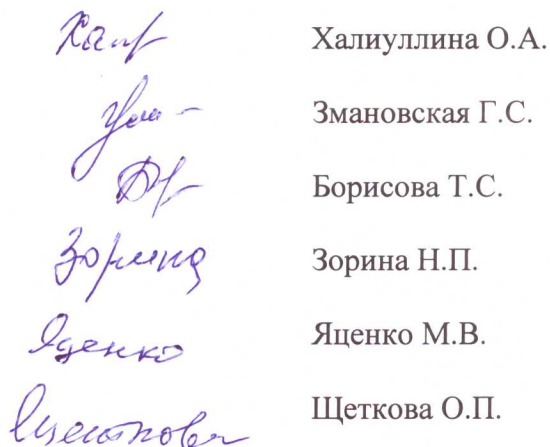 Халиуллина О.А.
Змановская Г.С.
Борисова Т.С.
Зорина Зорина Н.П.
Яценко Яценко М.В.
Щеткова О.П.